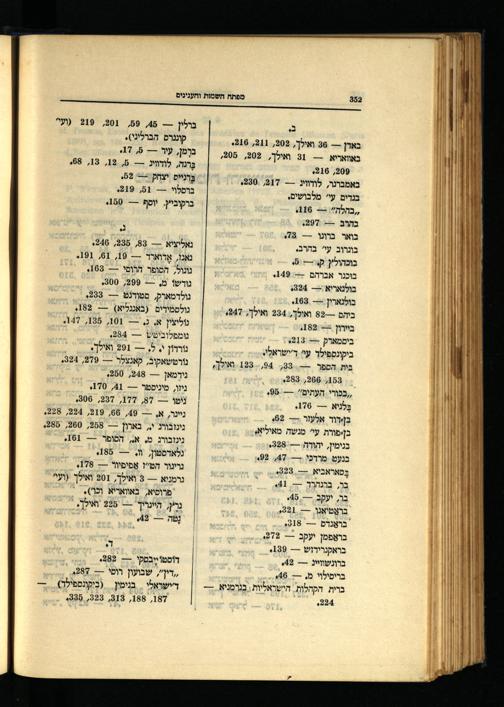 352
מפתח השמות והענינים
ב.
באדן — 36 ואילך, 202, 211, 216.
באוואריא — 31 ואילך, 202, 205,
209, 216.
באמברגר, לודוויג — 217, 230.
בגדים עי׳ מלבושים.
„בהלה״ — 116.
בהרב — 297.
בואר ברונו — 73.
בוגרוב עי׳ בהרב.
בוכהולץ ק. — 5.
בוכנר אברהם — 149.
בולגאריא — 324.
בולגארין — 163.
ביהם — 82 ואילך, 234 ואילך, 247.
ביירון — 182.
ביסמארק — 213.
ביקונספילד עי׳ ד׳ישראלי.
בית הספר — 33, 94, 123 ואילך,
153, 266, 283.
„בכורי העתים״ — 95.
בלגיא — 176.
בן־דוד אלעזר — 62.
בן־פורת עי׳ מנשה מאיליא.
בנימין, יהודה — 328.
בנעט מרדכי — 47, 92.
בסאראביא — 323.
בר, ברנהרד — 41.
בר, יעקב — 45.
בראטיאנו — 321.
בראנדס — 318.
בראפמן יעקב — 272.
בראקהויזש — 139.
ברוינשווייג — 42.
בריסילוי מ. — 46.
ברית הקהלות הישראליות בגרמניא —
224.
ברלין — 45, 59, 201, 219 (ועי׳
קונגרס הברליני).
ברמן, עיר — 5, 17.
ברנה, לודוויג — 5, 12, 13, 68.
ברנייס יצחק — 52.
ברסלוי — 51, 219.
ברקוביץ, יוסף — 150.
ג.
גאליציא — 83, 235, 246.
גאנז, אדוארד — 19, 61, 191.
גוגול, הסופר הרוסי — 163.
גודשו מ. — 299, 300.
גולדמארק, סטודנט — 233.
גולסמידים (באנגליא) — 182.
גוליצין א. נ. — 101, 135, 147.
גומפלוביטש — 284.
גורדון י. ל. — 291 ואילך.
גורטשאקוב, קאנצלר — 279, 324.
גידמאן — 248, 250.
גיזו, מיניסטר — 41, 170.
גיטו — 87, 177, 237, 306.
גייגר, א. — 49, 66, 219, 224, 228.
גינזבורג י., בארון — 258, 260, 285.
גינזבורג מ. א., הסופר — 161.
גלאדסטון, וו. — 185.
גריגור הט״ז אפיפיור — 178.
גרמניא — 3 ואילך, 201 ואילך (ועי׳
פרוסיא, באוואריא וכו׳).
גרץ, היינריך — 225 ואילך.
גתה — 42.
ד.
דוסטוייבסקי — 282.
„דין״, שבועון רוסי — 287.
ד׳ישראלי בנימין (ביקונספילד) —
187, 188, 313, 323, 335.